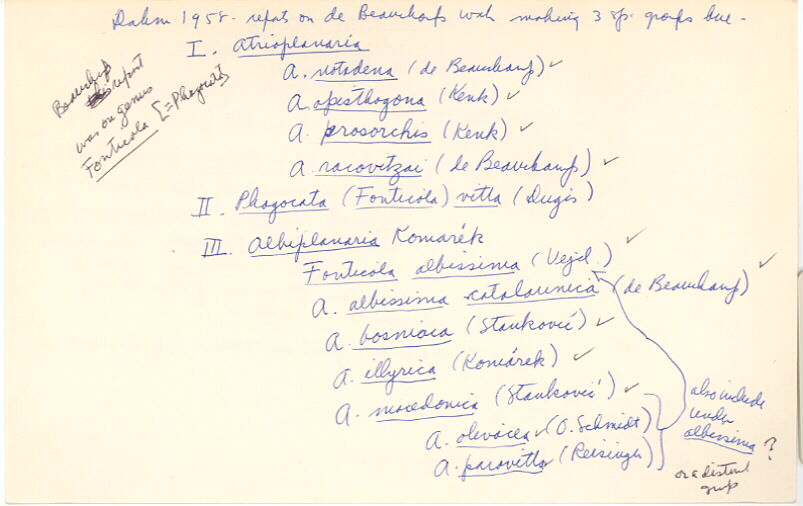 Dahm 1958. reports on de Beauchamp's work making 3 sp. groups line -
Beauchamp's
report
was on genus
Fonticola [=Phagocata]
I. Atrioplanaria
A. notadena (de Beauchamp) ✓
A. opisthogona (Kenk) ✓
A. prosorchis (Kenk) ✓
A. racovitzai (de Beauchamp) ✓
II. Phagocata (Fonticola) vitta (Dugès)
III. Albiplanaria Komárek
Fonticola albissima (Vejd.) ✓
A. albissima catalaunica (de Beauchamp) ✓
A. bosniaca (Stanković) ✓
A. illyrica (Komárek) ✓
A. macedonica (Stanković) ✓
A. olevacea ✓ (O. Schmidt)
A. paravitta (Reisinger)
also include
under
albissima ?
or a distinct
group